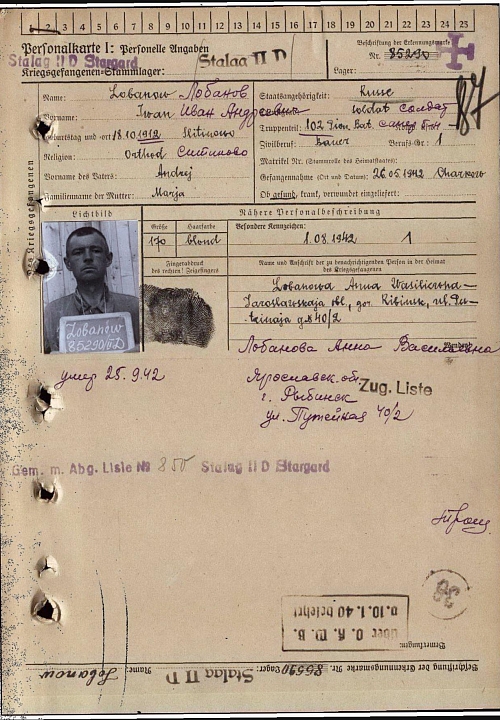 2 3 4 5 6 7 8 9 10 11 12 13 14 15 16 17 18 19 20 21 22 23 24 25
Personalkarte I: Personelle Angaben
Stalag II D Stargard
Stalag II D
Kriegsgefangenen-Stammlager:
Beschriftung der Erkennungsmarke
Nr. 85290
Lager:
87
Name: Lobanow Лобанов
Vorname: Iwan Иван Андреевич
Geburtstag und -ort 18.10.1912 Sitinowo
Religion: Orthod Ситиново
Vorname des Vaters: Andrej
Familienname der Mutter: Marja
Staatsangehörigkeit: Russe
soldat солдат
Truppenteil: 102 Pion. Bat.
Zivilberuf: Bauer Berufs-Gr. 1
Matrikel Nr. (Stammrolle des Heimatstaates):
Gefangennahme (Ort und Datum): 26.05.1942 Charkow
Ob gesund, krank, verwundet eingeliefert:
des Kriegsgefangenen
Lichtbild
Nähere Personalbeschreibung
Größe Haarfarbe Besondere Kennzeichen:
170 blond 1.08.1942 1
Fingerabdruck
des rechten! Zeigefingers
Name und Anschrift der zu benachrichtigenden Person in der Heimat
des Kriegsgefangenen
Lobanowa Anna Wasiliewna-
Jaroslawskaja obl., gor. Ribinsk, ul. Pu-
tejnaja 40/2
Lobanow
85290/IID
Лобанова Анна Васильевна
умер 25.9.42
Ярославск. об.
Zug. Liste
г. Рыбинск
ул. Путейная 40/2
Gem. m. Abg. Liste № 850 Stalag II D Stargard
36
über O. K. W. B.
v. 10.1.40 belehrt
Bemerkungen:
Beschriftung der Erkennungsmarke Nr. 85290 Lager: Stalag II D Name: Lobanow